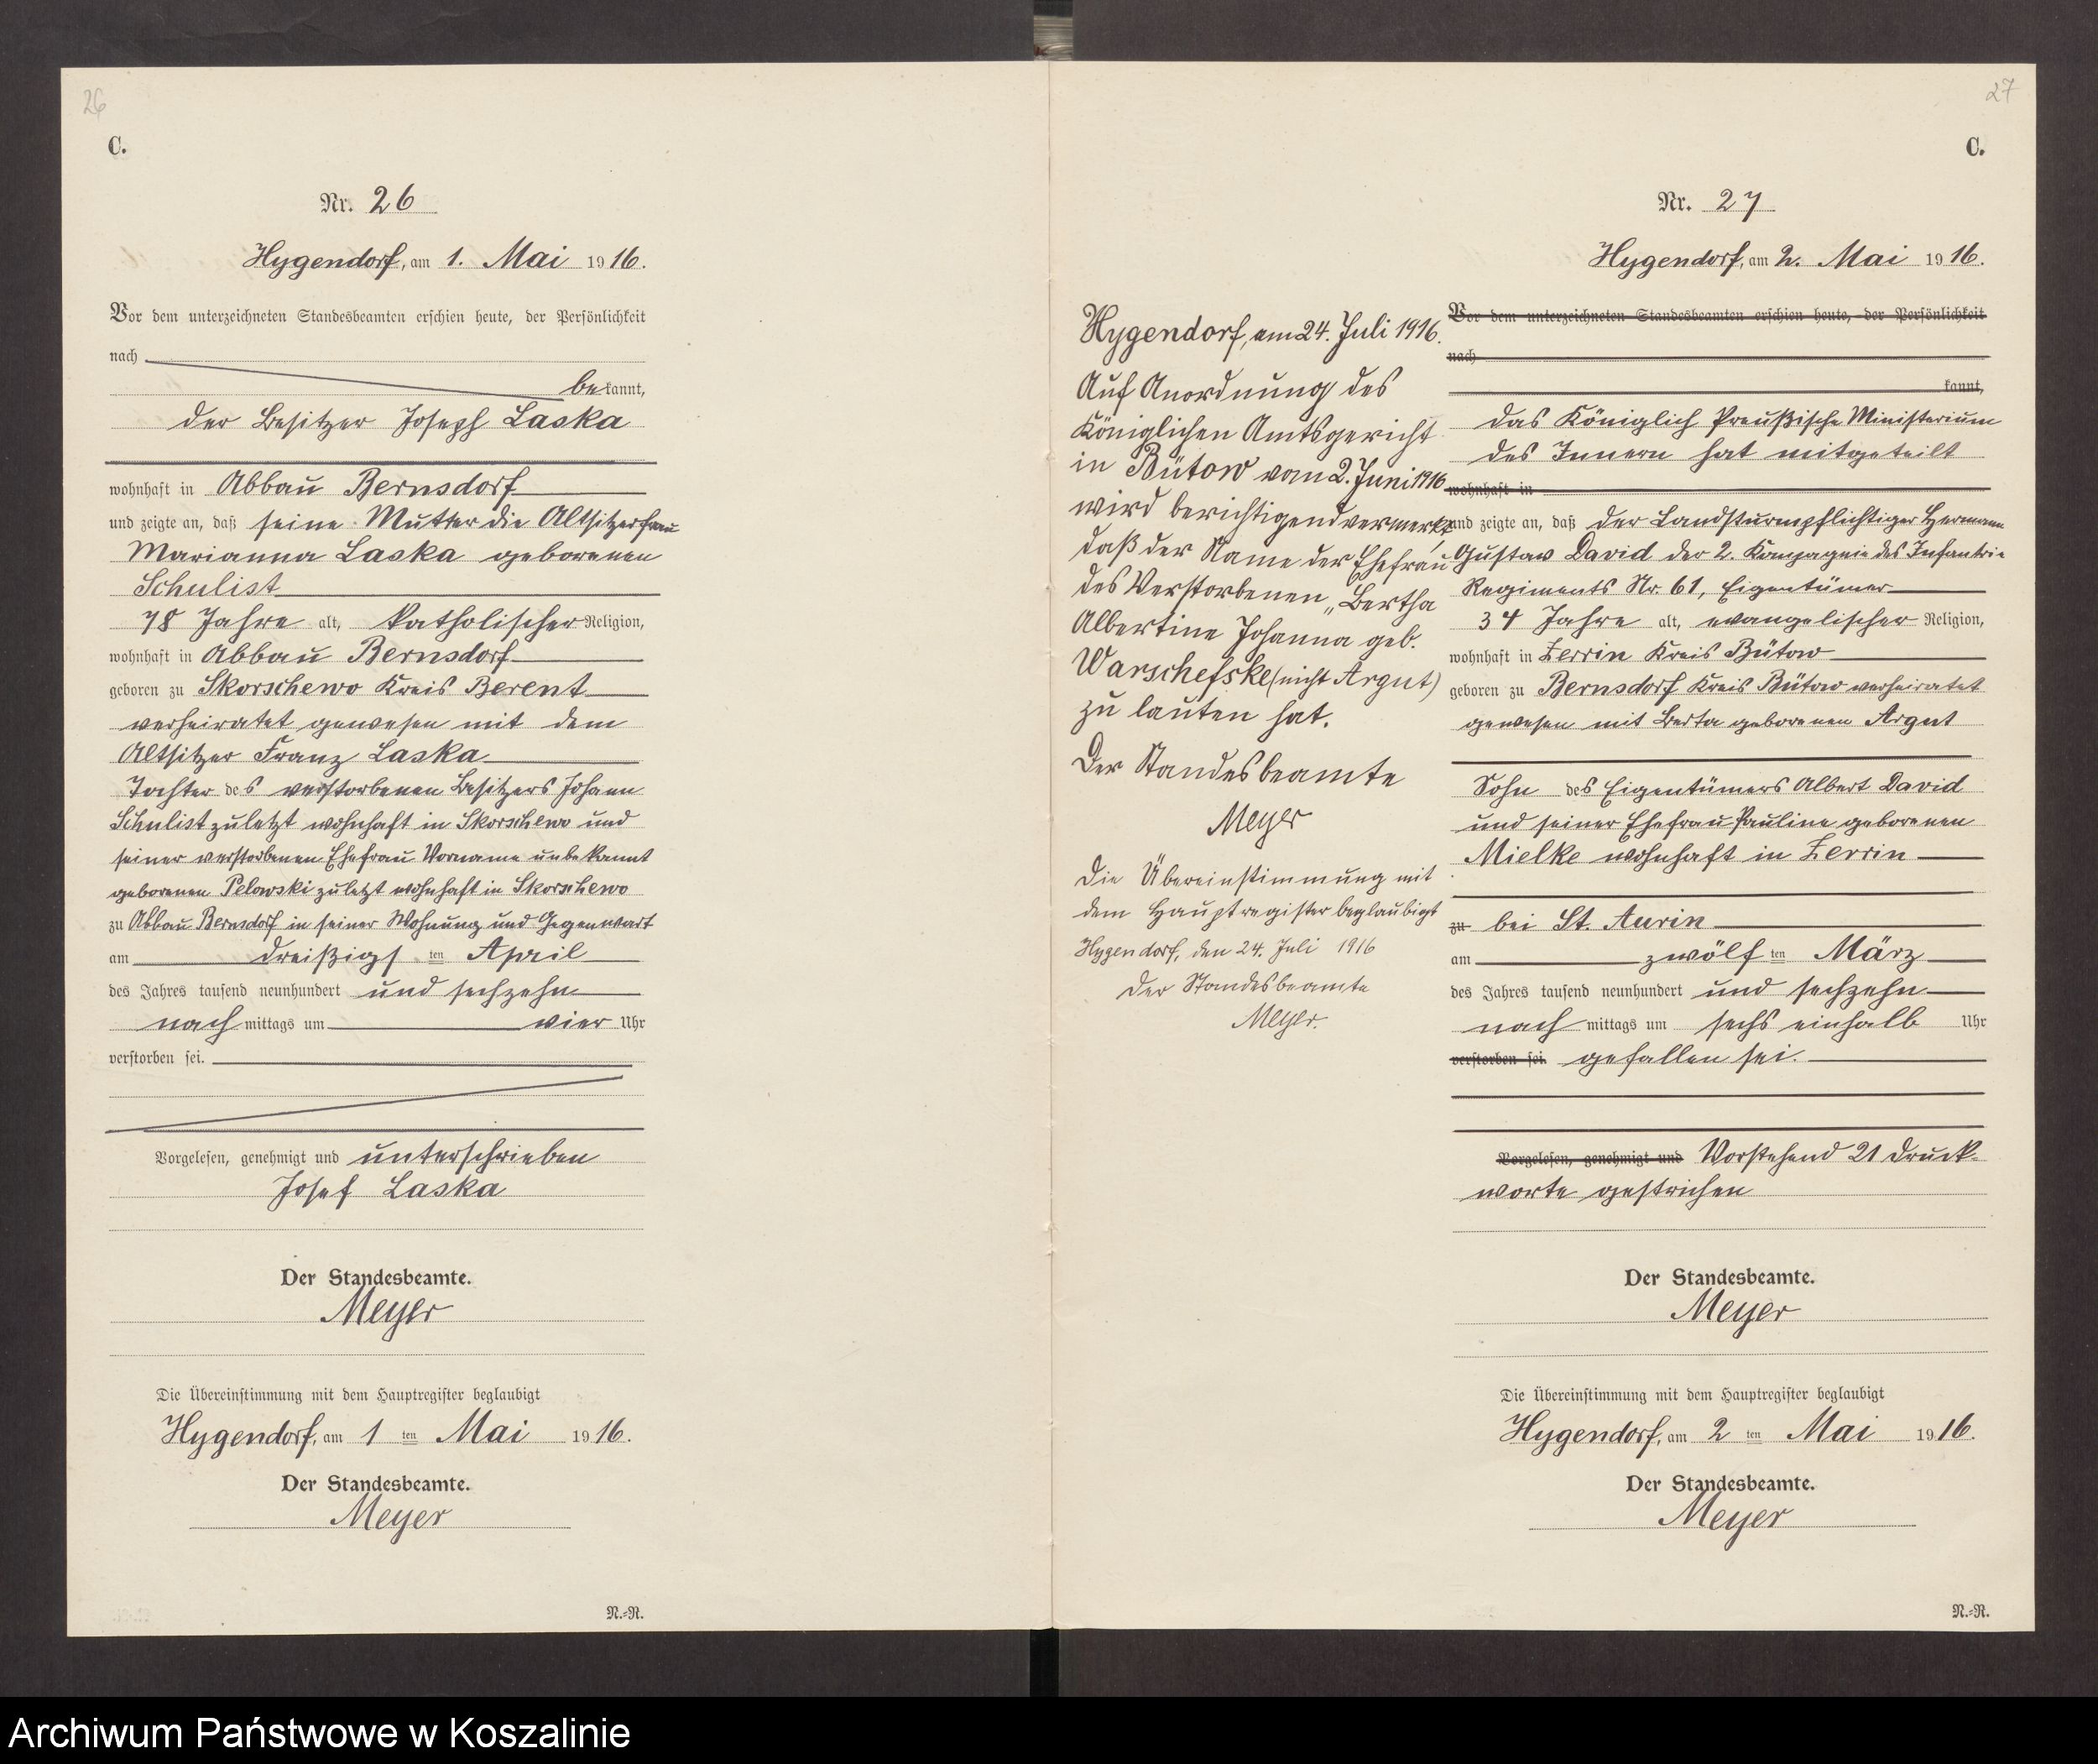 26
C.
Nr. 26
Hygendorf, am 1. Mai 1916.
Vor dem unterzeichneten Standesbeamten erschien heute, der Persönlichkeit
nach
bekannt,
der Besitzer Joseph Laska
wohnhaft in Abbau Bernsdorf
und zeigte an, daß seine Mutter die Altsitzerfrau
Marianna Laska geborenen
Schulist
78 Jahre alt, katholischer Religion,
wohnhaft in Abbau Bernsdorf
geboren zu Skorschewo Kreis Berent
verheiratet gewesen mit dem
Altsitzer Franz Laska
Tochter des verstorbenen Besitzers Johann
Schulist zuletzt wohnhaft in Skorschewo und
seiner verstorbenen Ehefrau Vorname unbekannt
geborenen Pelowski zuletzt wohnhaft in Skorschewo
zu Abbau Bernsdorf in seiner Wohnung und Gegenwart
am dreißigsten April
des Jahres tausend neunhundert und sechzehn
nachmittags um vier Uhr
verstorben sei.
Vorgelesen, genehmigt und unterschrieben
Josef Laska
Der Standesbeamte.
Meyer
Die Übereinstimmung mit dem Hauptregister beglaubigt
Hygendorf, am 1 ten Mai 1916.
Der Standesbeamte.
Meyer
N.-R.
27
C.
Nr. 27
Hygendorf, am 2. Mai 1916.
Vor dem unterzeichneten Standesbeamten erschien heute, der Persönlichkeit
nach
kannt,
das Königlich Preußische Ministerium
des Innern hat mitgeteilt
wohnhaft in
und zeigte an, daß der Landsturmpflichtiger Hermann
Gustav David der 2. Kompagnie des Infantrie
Regiments Nr. 61, Eigentümer
34 Jahre alt, evangelischer Religion,
wohnhaft in Zerrin Kreis Bütow
geboren zu Bernsdorf Kreis Bütow verheiratet
gewesen mit Berta geborenen Argut
Sohn des Eigentümers Albert David
und seiner Ehefrau Pauline geborenen
Mielke wohnhaft in Zerrin
zu bei St. Aurin
am zwölften März
des Jahres tausend neunhundert und sechzehn
nachmittags um sechs einhalb Uhr
verstorben sei. gefallen sei.
Vorgelesen, genehmigt und Vorstehend 21 Druck-
worte gestrichen
Der Standesbeamte.
Meyer
Die Übereinstimmung mit dem Hauptregister beglaubigt
Hygendorf, am 2 ten Mai 1916.
Der Standesbeamte.
Meyer
N.-R.
Hygendorf, am 24. Juli 1916.
Auf Anordnung des
Königlichen Amtsgericht
in Bütow vom 2. Juni 1916
wird berichtigend vermerkt,
daß der Name der Ehefrau
des Verstorbenen „Bertha
Albertine Johanna geb.
Warschefske (nicht Argut)
zu lauten hat.
Der Standesbeamte
Meyer
Die Übereinstimmung mit
dem Hauptregister beglaubigt
Hygendorf, den 24. Juli 1916
Der Standesbeamte
Meyer.
Archiwum Państwowe w Koszalinie